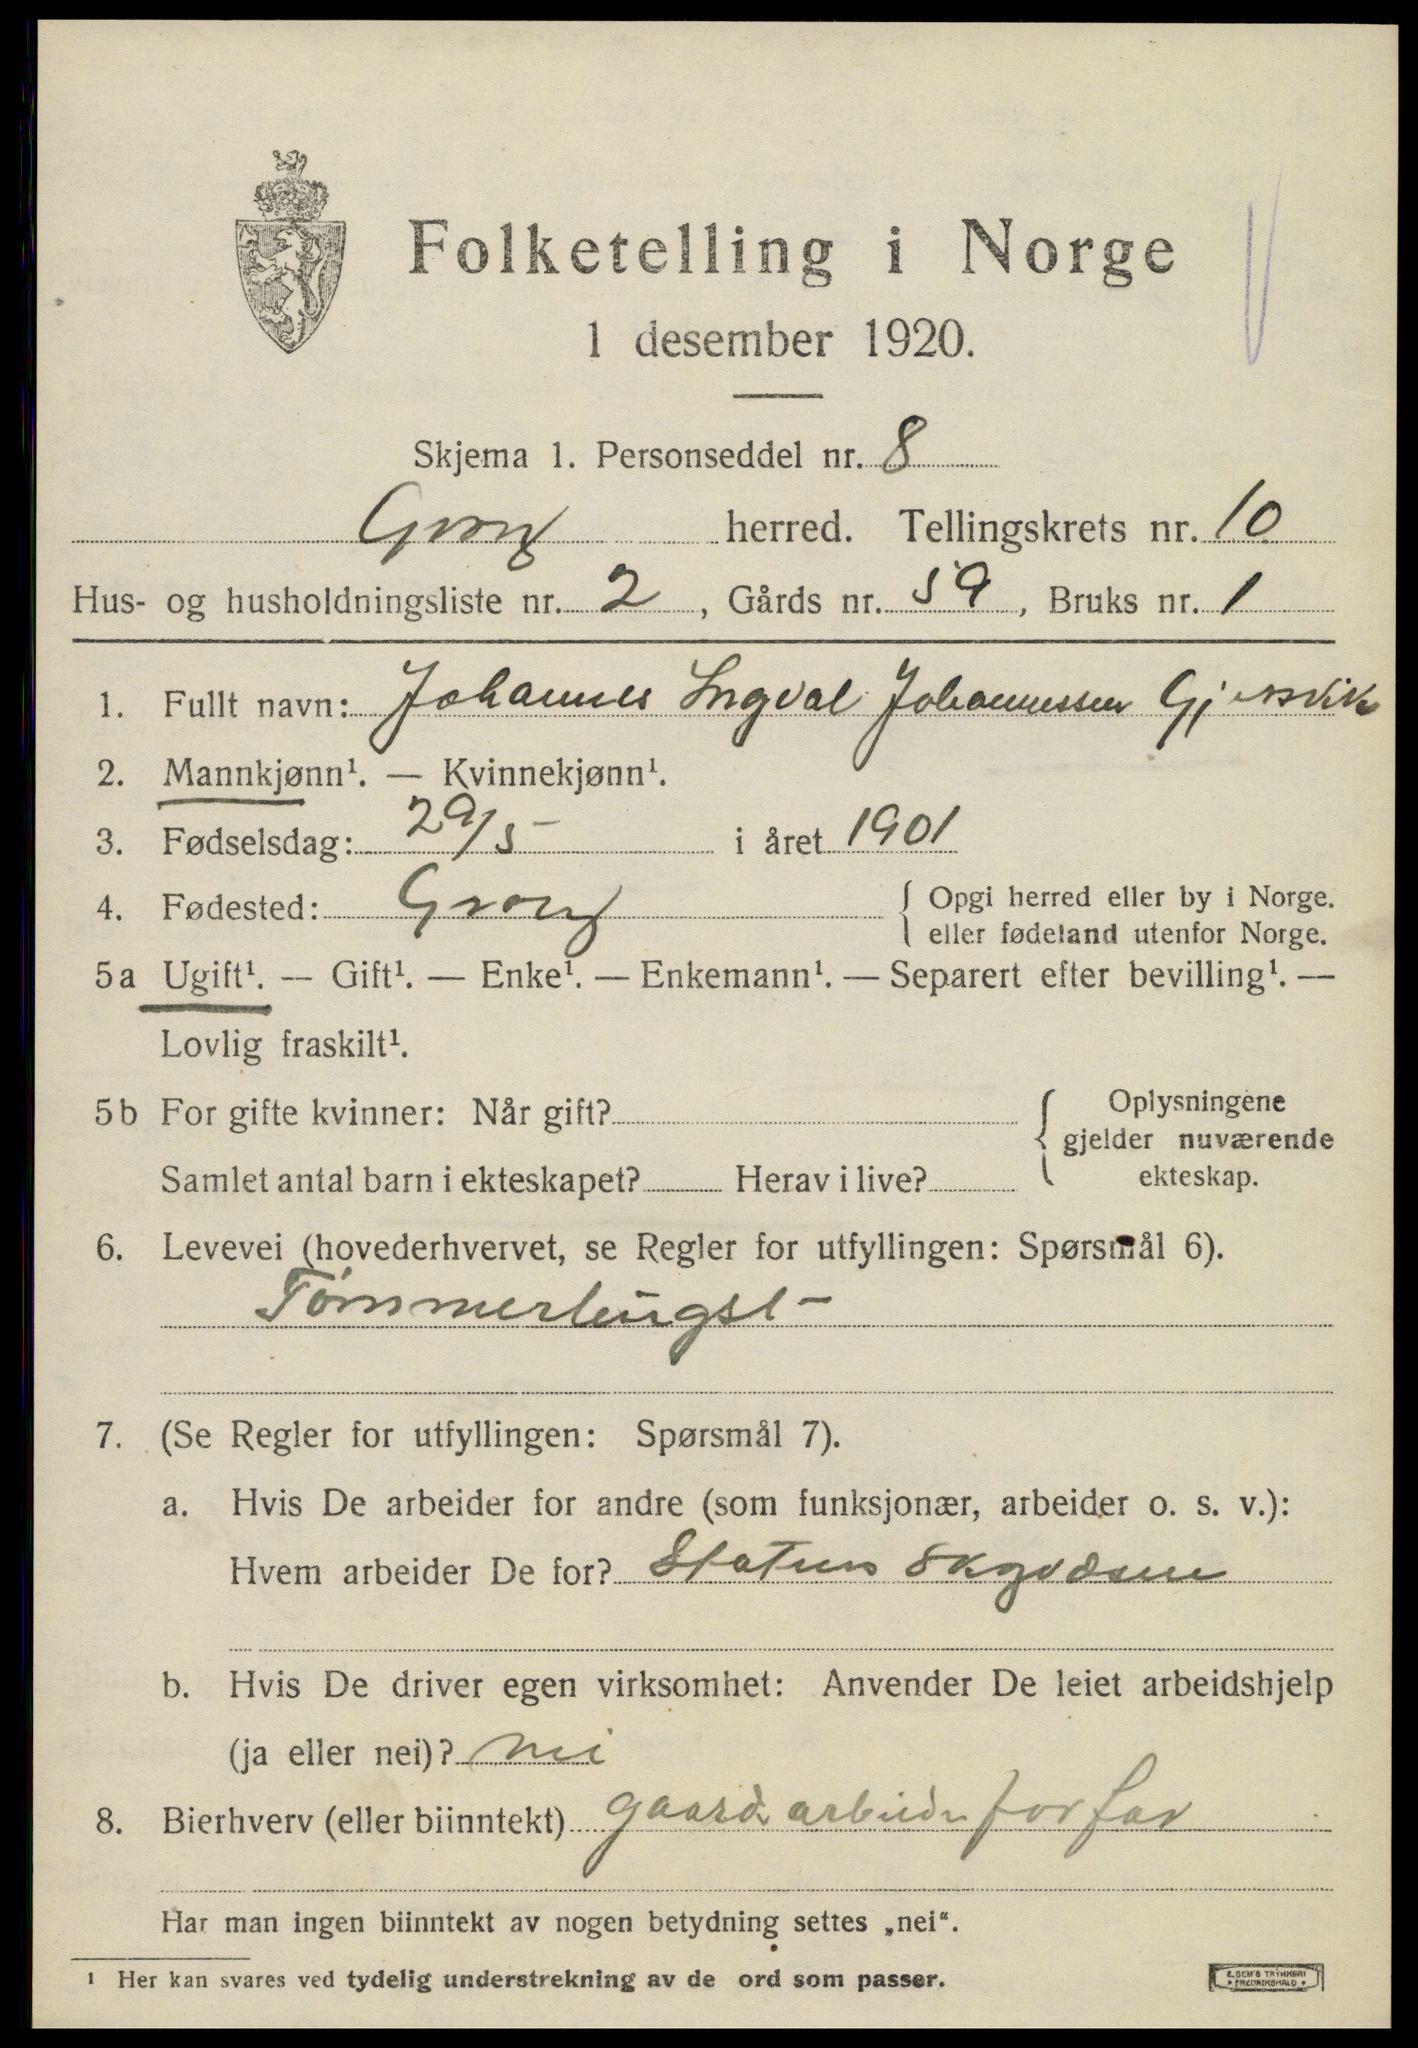 Folketelling i Norge
1 desember 1920.
Skjema 1. Personseddel nr. 8
Grong herred. Tellingskrets nr. 10
Hus- og husholdningsliste nr. 2, Gårds nr. 59, Bruks nr. 1
1. Fullt navn: Johannes Ingval Johannessen Gjersvik
2. Mannkjønn¹. — Kvinnekjønn¹.
3. Fødselsdag: 29/5 i året 1901
4. Fødested: Grong { Opgi herred eller by i Norge.
eller fødeland utenfor Norge.
5a Ugift¹. — Gift¹. — Enke¹. — Enkemann¹. — Separert efter bevilling¹. —
Lovlig fraskilt¹.
5b For gifte kvinner: Når gift? { Oplysningene
gjelder nuværende
ekteskap.
Samlet antal barn i ekteskapet? Herav i live?
6. Levevei (hovederhvervet, se Regler for utfyllingen: Spørsmål 6).
7. (Se Regler for utfyllingen: Spørsmål 7).
a. Hvis De arbeider for andre (som funksjonær, arbeider o. s. v.):
Hvem arbeider De for? Statens
b. Hvis De driver egen virksomhet: Anvender De leiet arbeidshjelp
(ja eller nei)? nei
8. Bierhverv (eller biinntekt) for far
Har man ingen biinntekt av nogen betydning settes „nei“.
¹ Her kan svares ved tydelig understrekning av de ord som passer.
E. SEM'S TRYKKERI
• FREDRIKSHALD •